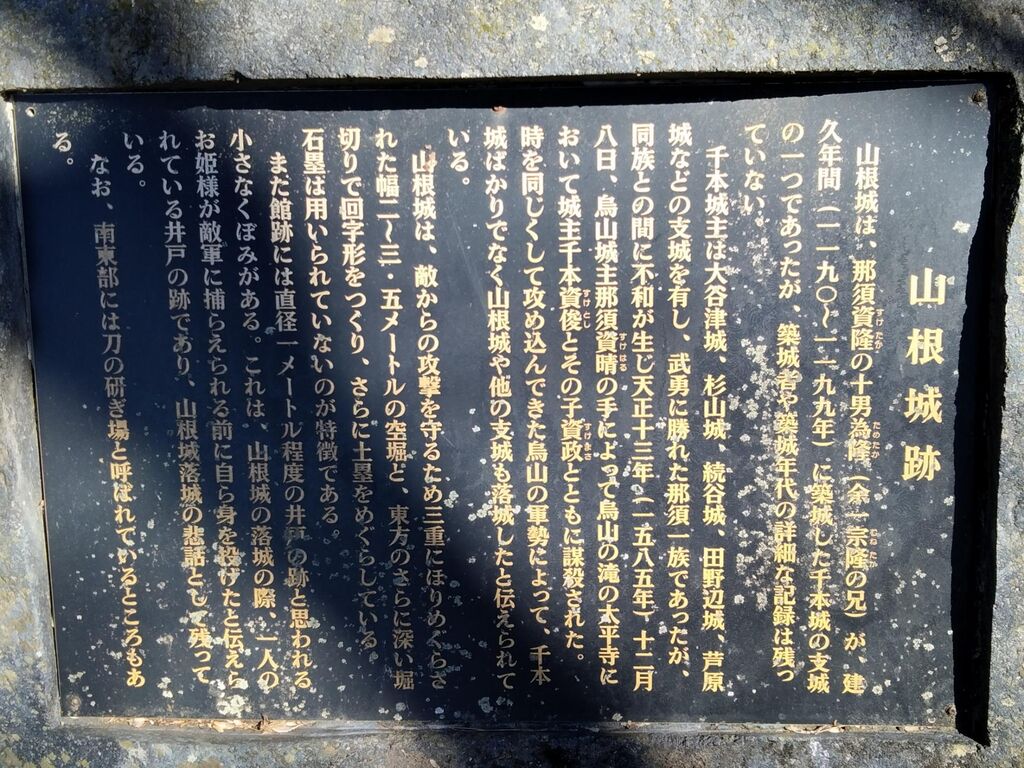 山根城跡
山根城は、那須資隆の十男為隆（余一宗隆の兄）が、建
久年間（一一九〇～一一九九年）に築城した千本城の支城
の一つであったが、築城者や築城年代の詳細な記録は残っ
ていない。
千本城主は大谷津城、杉山城、続谷城、田野辺城、芦原
城などの支城を有し、武勇に勝れた那須一族であったが、
同族との間に不和が生じ天正十三年（一五八五年）十二月
八日、烏山城主那須資晴の手によって烏山の滝の太平寺に
おいて城主千本資俊とその子資政とともに謀殺された。
時を同じくして攻め込んできた烏山の軍勢によって、千本
城ばかりでなく山根城や他の支城も落城したと伝えられて
いる。
山根城は、敵からの攻撃を守るため三重にほりめぐらさ
れた幅二～三・五メートルの空堀と、東方のさらに深い堀
切りで回字形をつくり、さらに土塁をめぐらしている
石塁は用いられていないのが特徴である。
また館跡には直径一メートル程度の井戸の跡と思われる
小さなくぼみがある。これは、山根城の落城の際、一人の
お姫様が敵軍に捕らえられる前に自ら身を投げたと伝えら
れている井戸の跡であり、山根城落城の悲話として残って
いる。
なお、南東部には刀の研ぎ場と呼ばれているところもあ
る。